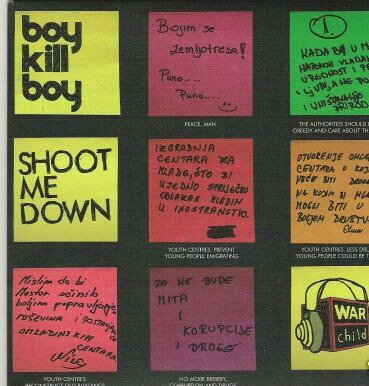 boy
kill
boy
Bojim se
zemljotresa!
Puno....
Puno....
PEACE, MAN
1.
KADA BI U
VLADAN
I
I LJUDI, A NE
I UNIŠTAVANJE
THE AUTHORITIES SHOULD
GREEDY AND CARE ABOUT TH
SHOOT
ME
DOWN
IZGRADNJA
CENTARA ZA
MLADE, ŠTO BI
UJEDNO SPRIJEČIO
ODLAZAK MLADIH
U INOSTRANSTVO.
YOUTH CENTRES, PREVENT
YOUNG PEOPLE EMIGRATING
OTVORENJE
CENTARA U
NEĆE BITI
NA KOJIM BI
MOGLI BITI U
BOLJEM
YOUTH CENTRES, LESS DRU
YOUNG PEOPLE COULD BE
Mislim da bi
Mostar učinilo
boljim popravljanje
ruševina i
OMLADINSKIH
CENTARA
YOUTH CENTRES,
RECONSTRUCT OLD BUILDINGS
DA NE BUDE
MITA
I
KORUPCIJE
I DROGE
NO MORE BRIBERY,
CORRUPTION AND DRUGS
WAR
child